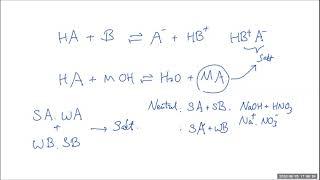 HA + B ⇌ A⁻ + HB⁺ HB⁺ A⁻
Salt
HA + MOH ⇌ H₂O + MA
SA. WA
+
WB. SB
→ Salt.
Neutral. SA + SB. NaOH + HNO₃
Na⁺ NO₃⁻
. SA + WB